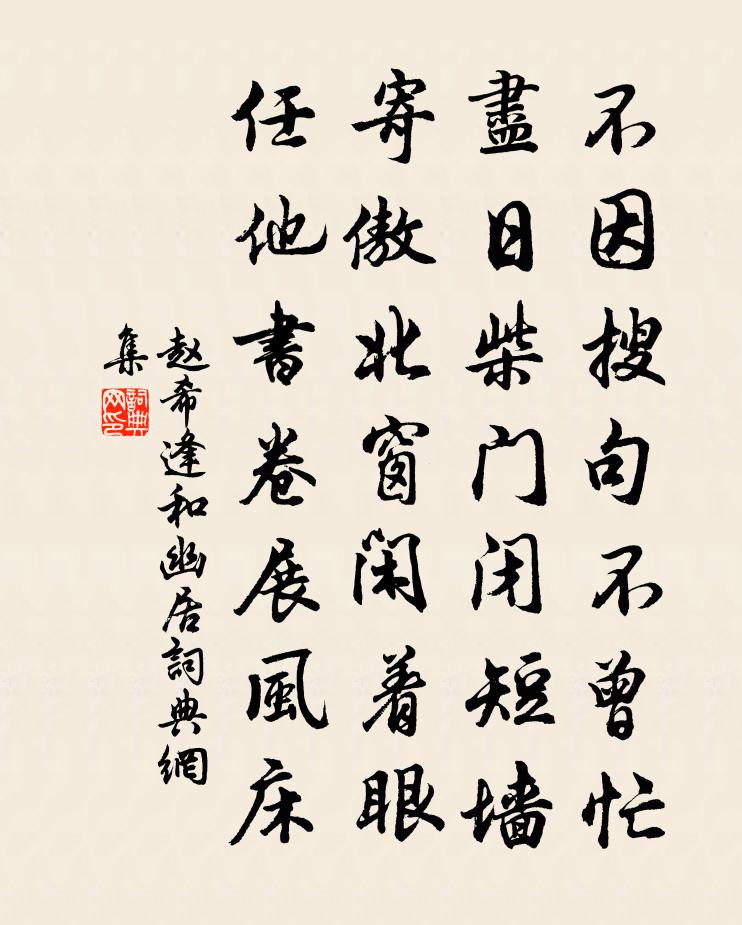 不因搜句不曾忙
盡日柴门闭短墙
寄傲北窗闲着眼
任他書卷展風床
赵希逢和幽居詞典網
集
詞典
网印